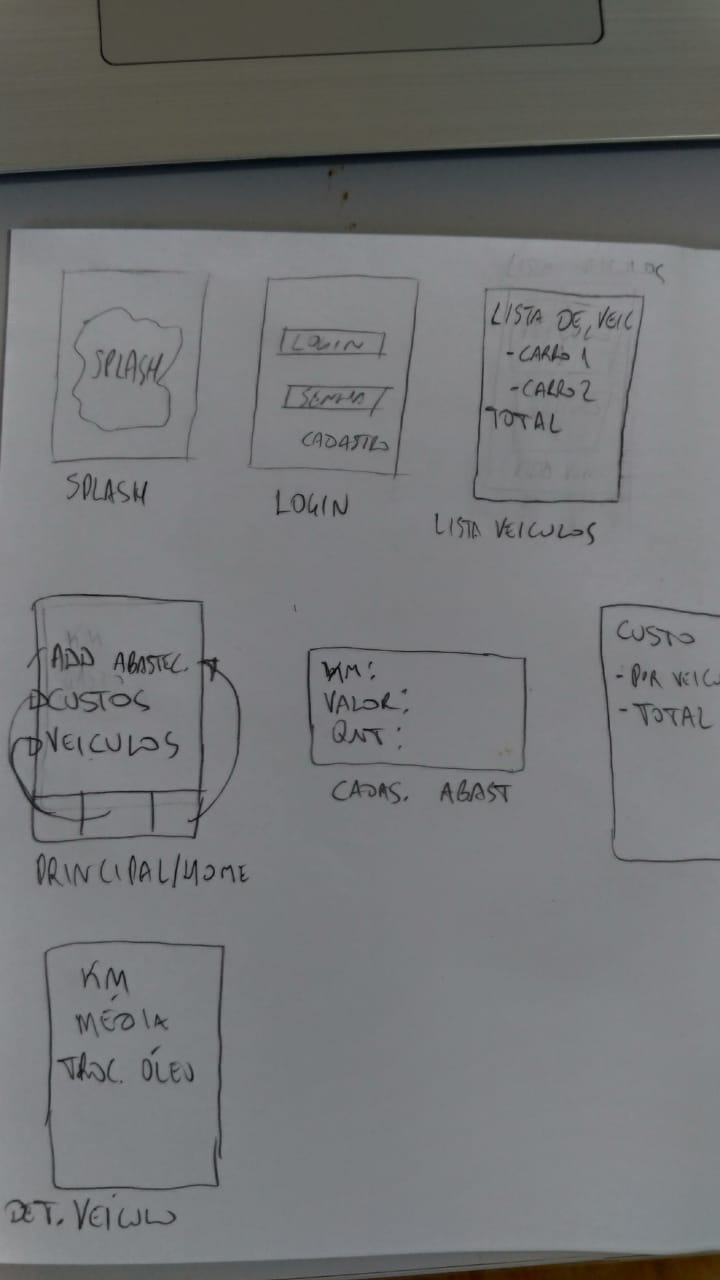 SPLASH
SPLASH
LOGIN
SENHA
CADASTRO
LOGIN
LISTA DE VEIC
-CARRO 1
-CARRO 2
TOTAL
LISTA VEICULOS
ADD ABASTEC.
CUSTOS
VEICULOS
PRINCIPAL/HOME
KM:
VALOR:
QNT:
CADAS. ABAST
CUSTO
-POR VEICU
-TOTAL
KM
MÉDIA
TROC. ÓLEO
DET. VEÍCULO